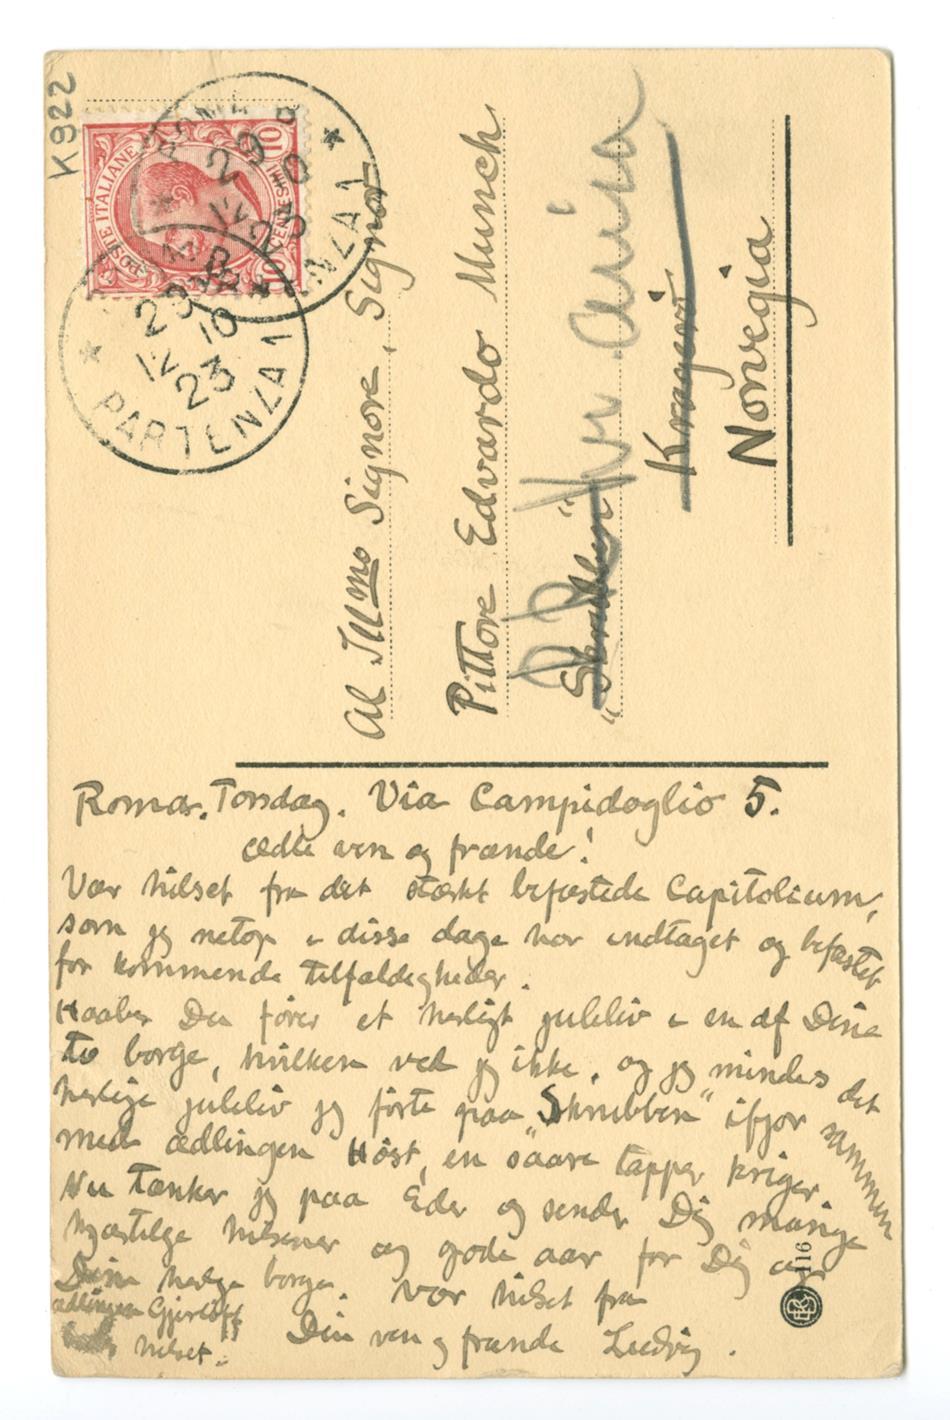 K922
POSTE ITALIANE
CENTESIMI 10
ROMA
29 12 10 23
PARTENZA 1
Al Illmo Signore, Signor
Pittore Edvardo Munch
"Skrubben"
Kragerø
Norvegia
Roma. Torsdag. Via Campidoglio 5.
Ædle ven og frænde!
Vær hilset fra det stærkt befæstede Capitolium,
som jeg netop i disse dage har indtaget og befæstet
for kommende tilfældigheder.
Haaber Du fører et herligt juleliv i en af Dine
to borge, hvilken ved jeg ikke, og jeg mindes det
herlige juleliv jeg førte paa "Skrubben" ifjor sammen
med ædlingen Høst, en saare tapper kriger.
Nu tænker jeg paa Eder og sender Dig mange
hjærtelige hilsener og gode aar for Dig og
Dine herlige borge. Vær hilset fra
Din ven og frænde Ludvig.
ædlingen Gjerløff
hilset.
116